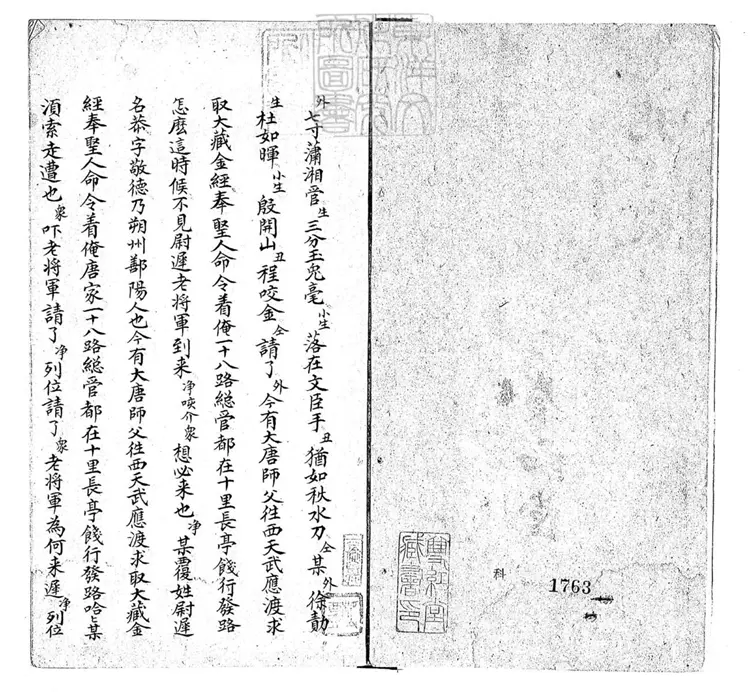 外七寸瀟湘管生三分玉兔毫小生落在文臣手丑猶如秋水刀仝某外徐勣
生杜如暉小生殷開山丑程咬金仝請了外今有大唐師父徃西天武應渡求
取大藏金經奉聖人命令着俺一十八路總管都在十里長亭餞行發路
怎麽這時候不見尉遲老將軍到来净唉介衆想必来也净某覆姓尉遲
名恭字敬德乃朔州鄯陽人也今有大唐師父徃西天武應渡求取大藏金
經奉聖人命令着俺唐家一十八路總管都在十里長亭餞行發路哈哈某
湏索走遭也衆吓老將軍請了净列位請了衆老將軍為何来遲净列位
科
1763